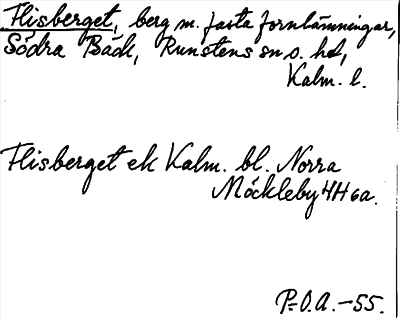 Flisberget, berg m. fasta fornlämningar,
Södra Bäck, Runstens sn o. hd,
Kalm. l.
Flisberget ek Kalm. bl. Norra
Möckleby 4H 6a.
P-O.A. -55.